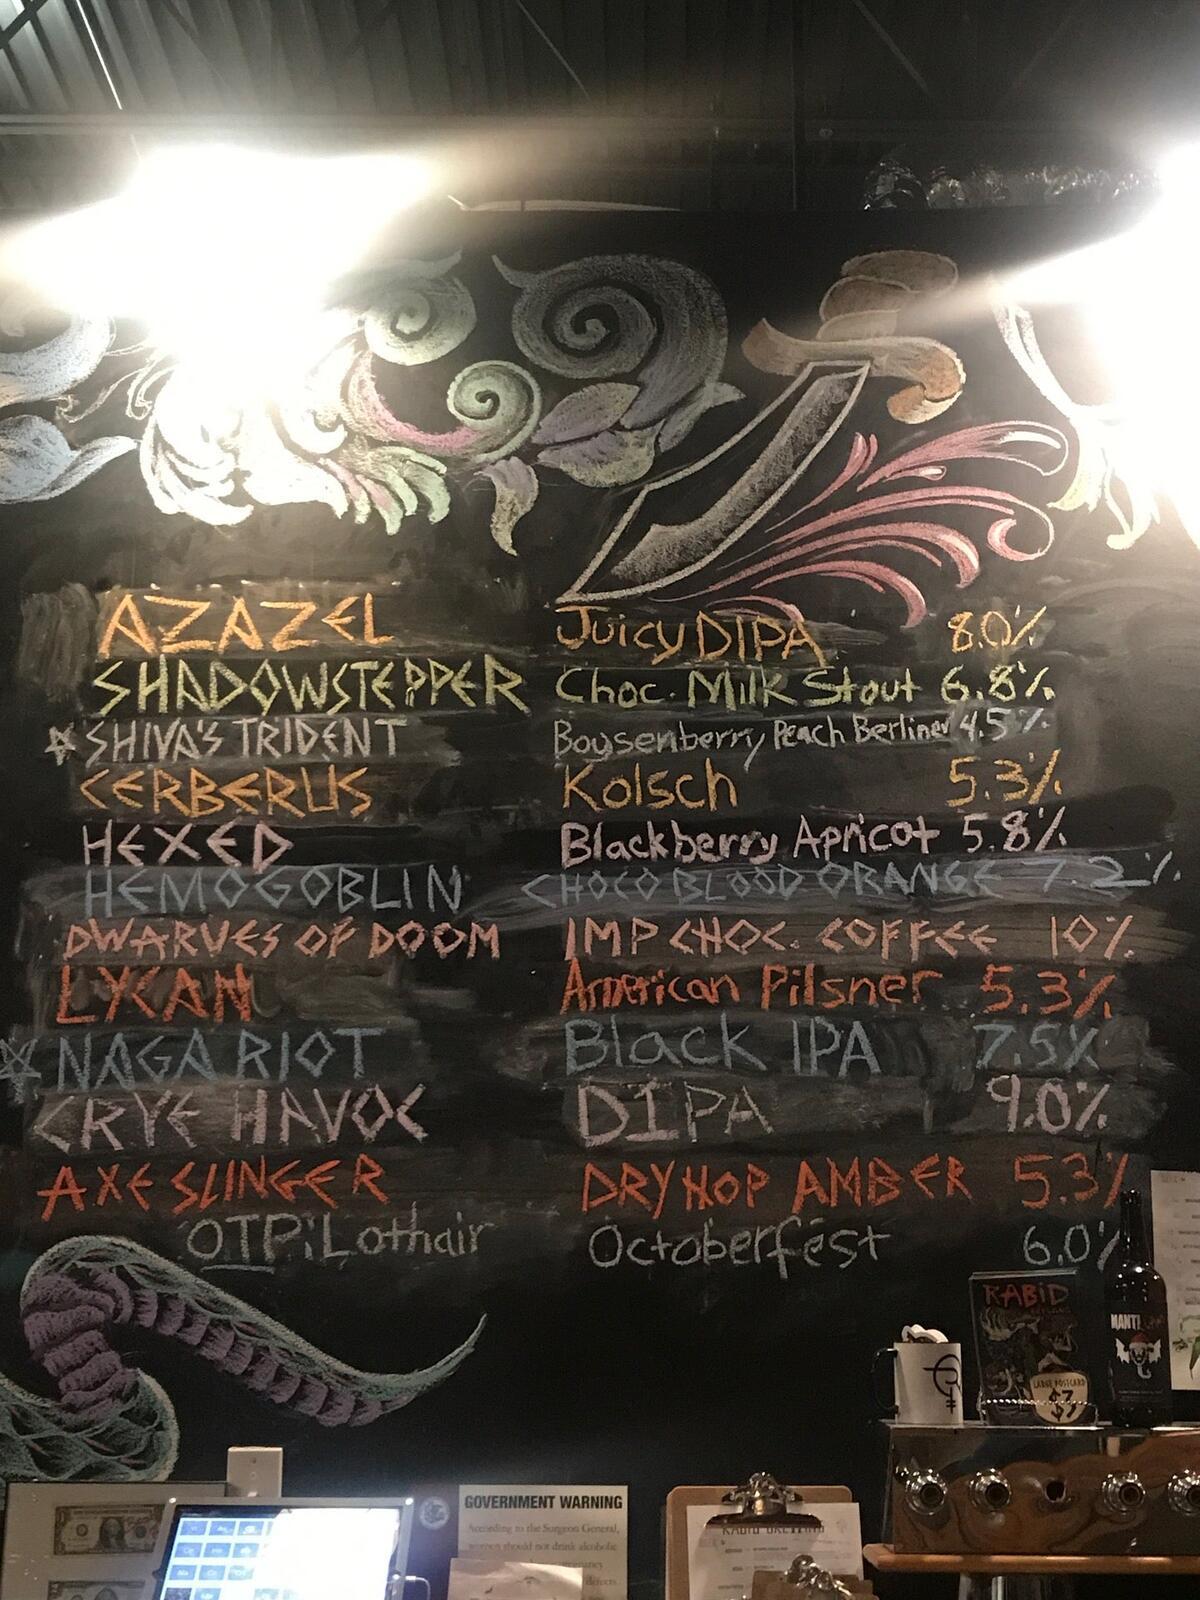 AZAZEL Juicy DIPA 8.0%
SHADOWSTEPPER Choc. Milk Stout 6.8%
☆ SHIVA'S TRIDENT Boysenberry Peach Berliner 4.5%
CERBERUS Kolsch 5.3%
HEXED Blackberry Apricot 5.8%
HEMOGOBLIN CHOCO BLOOD ORANGE 7.2%
DWARVES OF DOOM IMP CHOC. COFFEE 10%
LYCAN American Pilsner 5.3%
☆ NAGA RIOT Black IPA 7.5%
CRYE HAVOC DIPA 9.0%
AXE SLINGER DRY HOP AMBER 5.3%
OTP: Lothair Octoberfest 6.0%
RABID
LARGE POSTCARD
$3
MANTI
GOVERNMENT WARNING
According to the Surgeon General,
women should not drink alcoholic
RABID BREWING